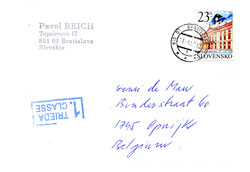 Pavel REICH
851 01 Bratislava
Slovakia
23
SLOVENSKO
TRIEDA 1.
CLASSE
Henri de Maw
Bundenstraat 60
1745 Opwijk
Belgium.